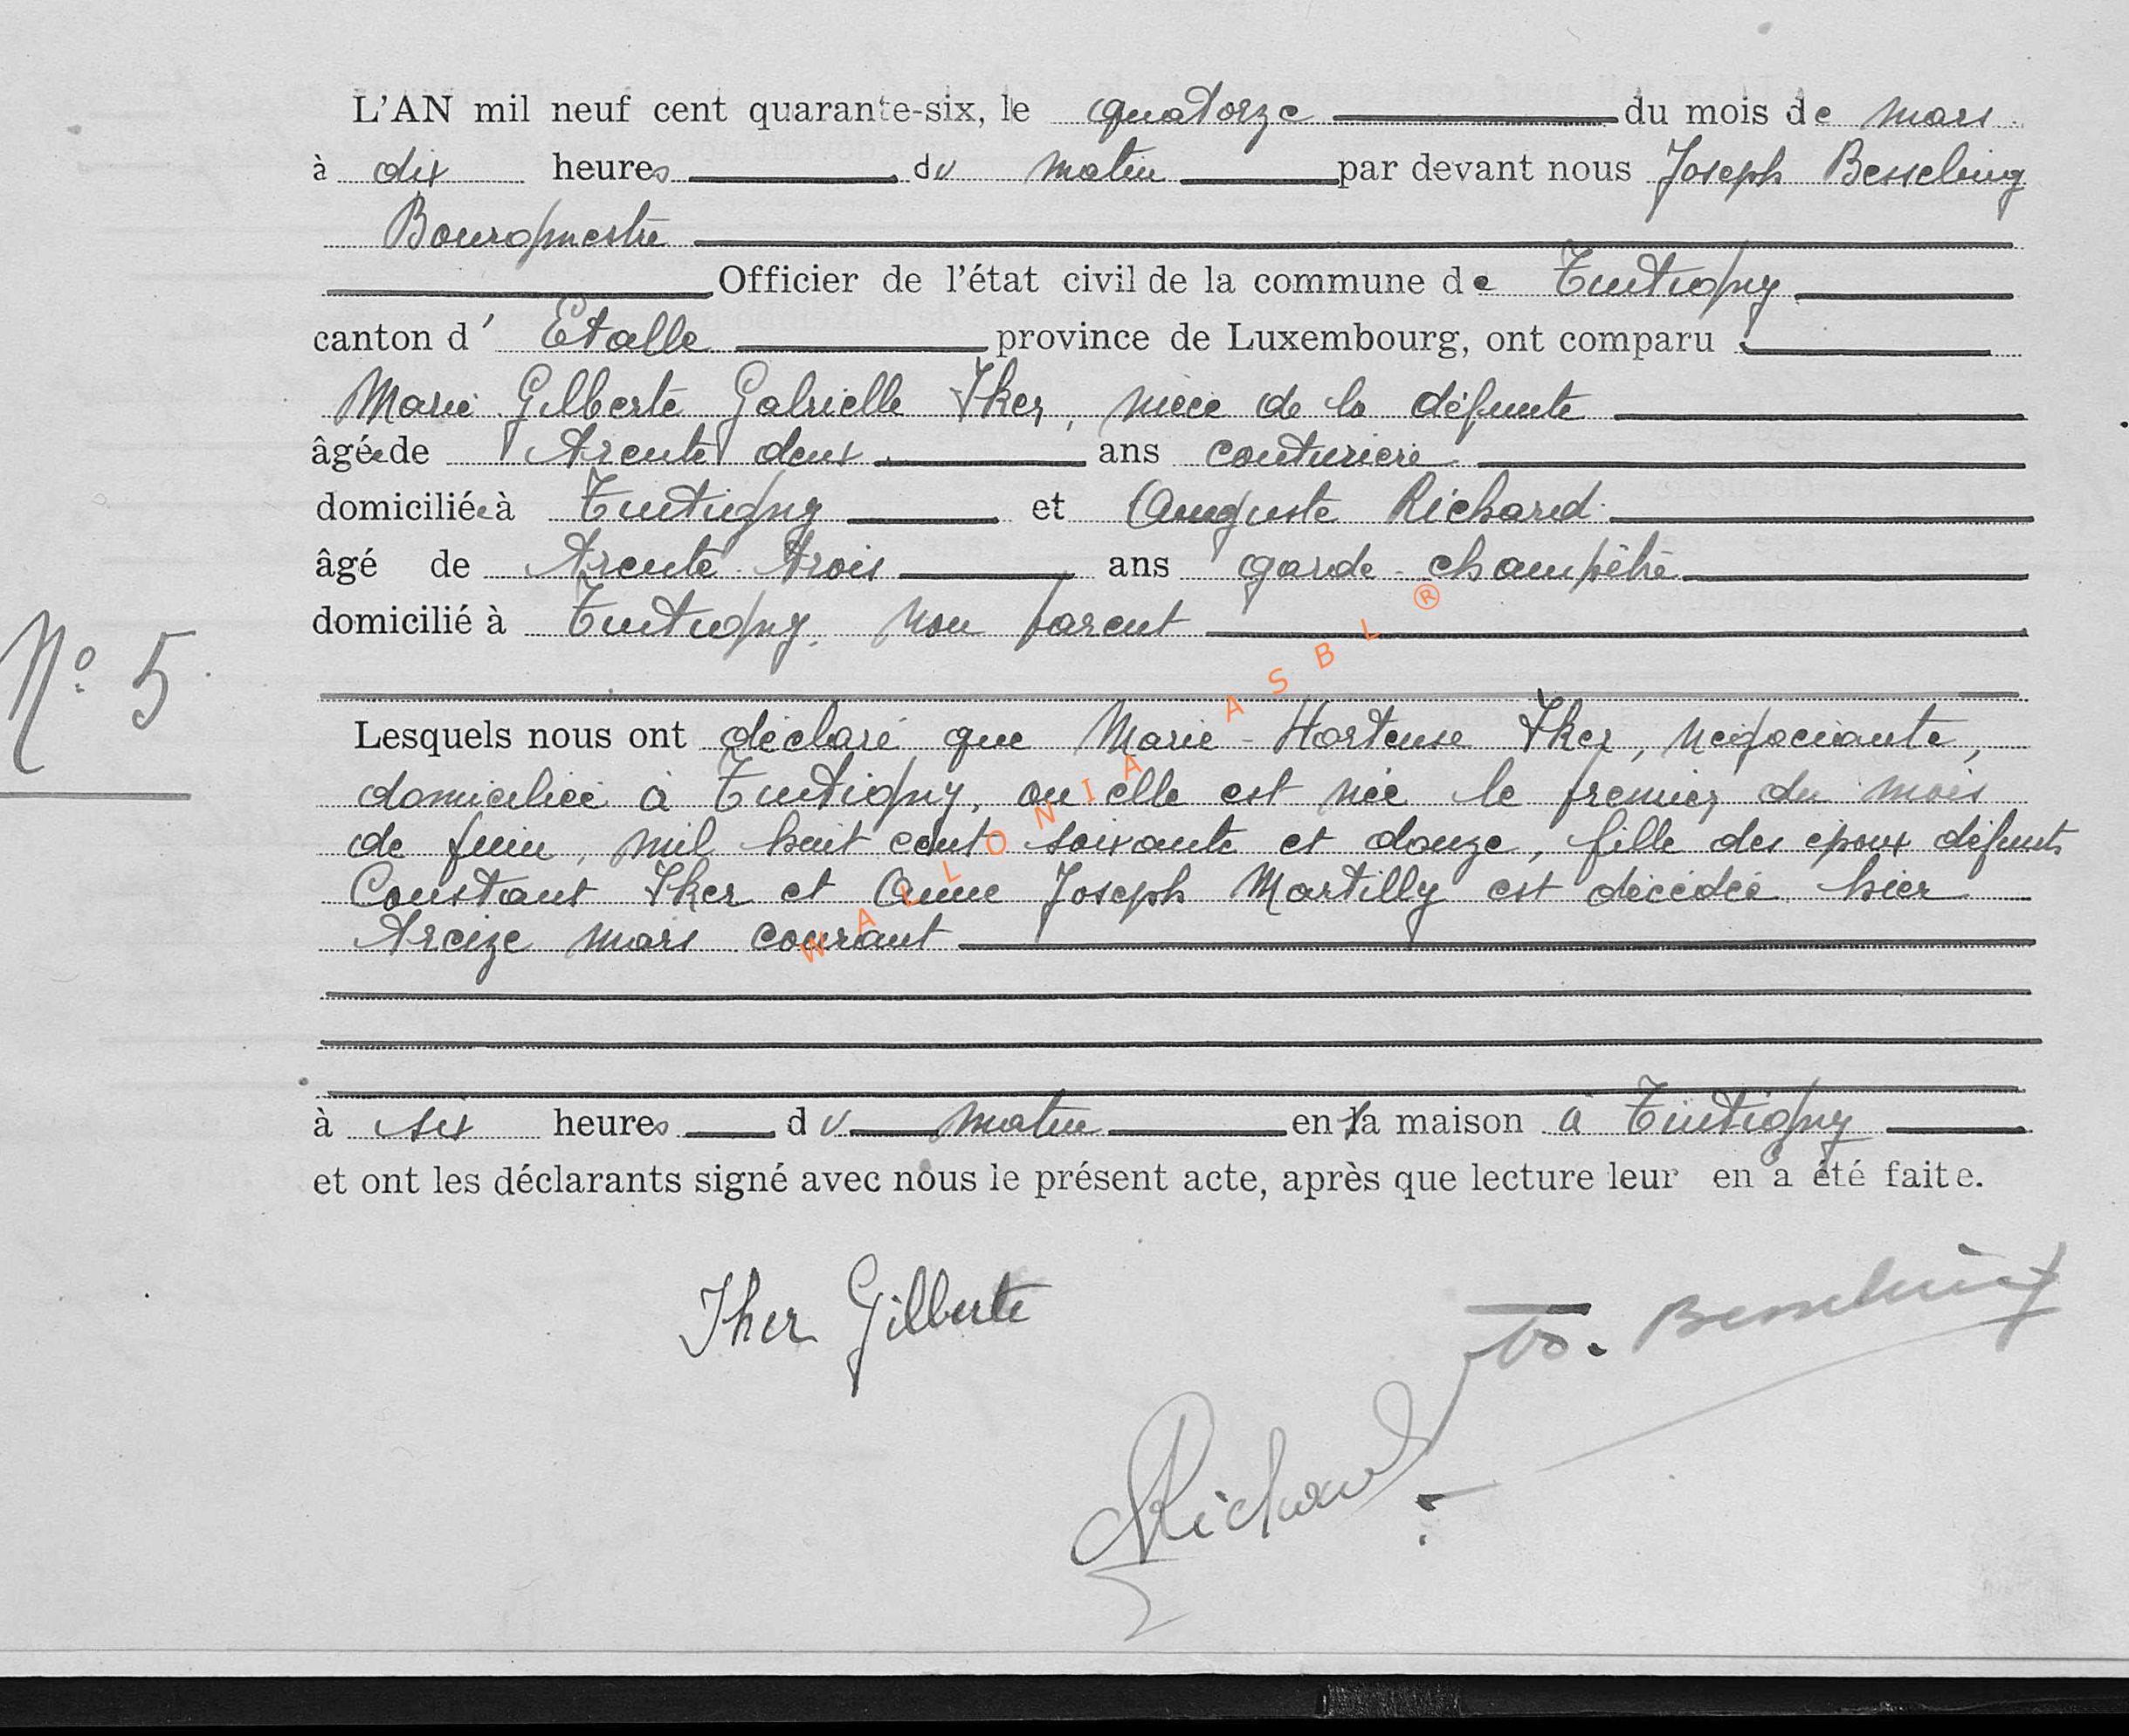 L'AN mil neuf cent quarante-six, le quatorze du mois de mars
à dix heures du matin par devant nous Joseph Besseling
Bourgmestre
Officier de l'état civil de la commune de Tintigny
canton d' Etalle province de Luxembourg, ont comparu :
Marie Gilberte Gabrielle Iker, nièce de la défunte
âgée de trente deux ans couturière
domiciliée à Tintigny et Auguste Richard
âgé de trente trois ans garde-champêtre
domicilié à Tintigny, non parent
N° 5
Lesquels nous ont déclaré que Marie-Hortense Iker, négociante,
domiciliée à Tintigny, où elle est née le premier du mois
de juin, mil huit cent soixante et douze, fille des époux défunts
Constant Iker et Anne Joseph Martilly est décédée hier
treize mars courant
à six heures du matin en sa maison à Tintigny
et ont les déclarants signé avec nous le présent acte, après que lecture leur en a été faite.
Iker Gilberte
Besseling
Richard
WALLONIA ASBL ®